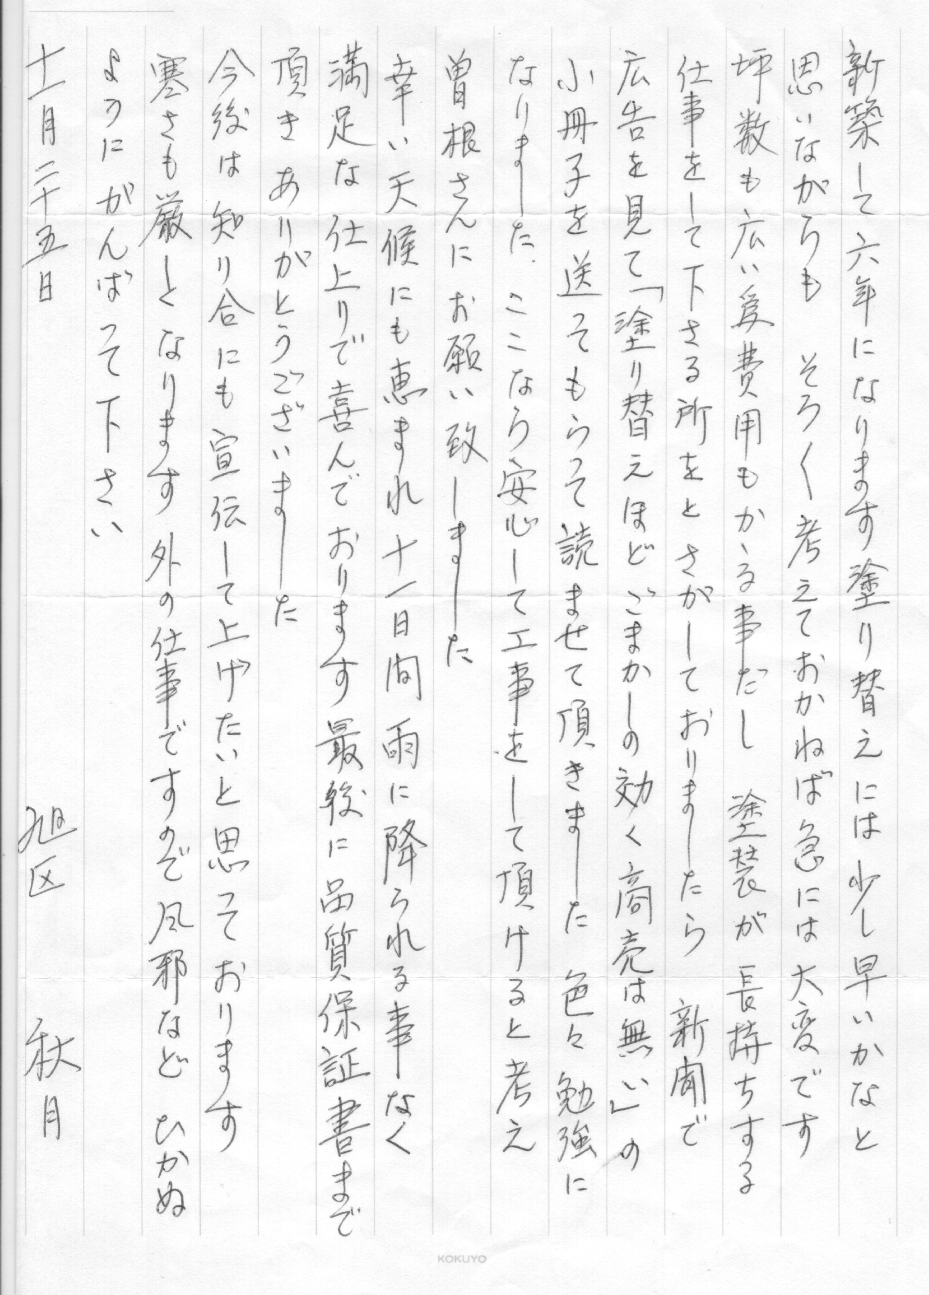 新築して六年になります塗り替えには少し早いかなと
思いながらも そろ〱考えておかねば急には大変です
坪数も広い為費用もかゝる事だし 塗装が長持ちする
仕事をして下さる所をとさがしておりましたら 新聞で
広告を見て「塗り替えほどごまかしの効く商売は無い」の
小冊子を送ってもらって読ませて頂きました 色々勉強に
なりました ここなら安心して工事をして頂けると考え
曽根さんにお願い致しました
幸い天候にも恵まれ十一日間雨に降られる事なく
満足な仕上りで喜んでおります最後に品質保証書まで
頂きありがとうございました
今後は知り合にも宣伝して上げたいと思っております
寒さも厳しくなります外の仕事ですので風邪などひかぬ
ようにがんばって下さい
十一月二十五日 旭区 秋月
KOKUYO